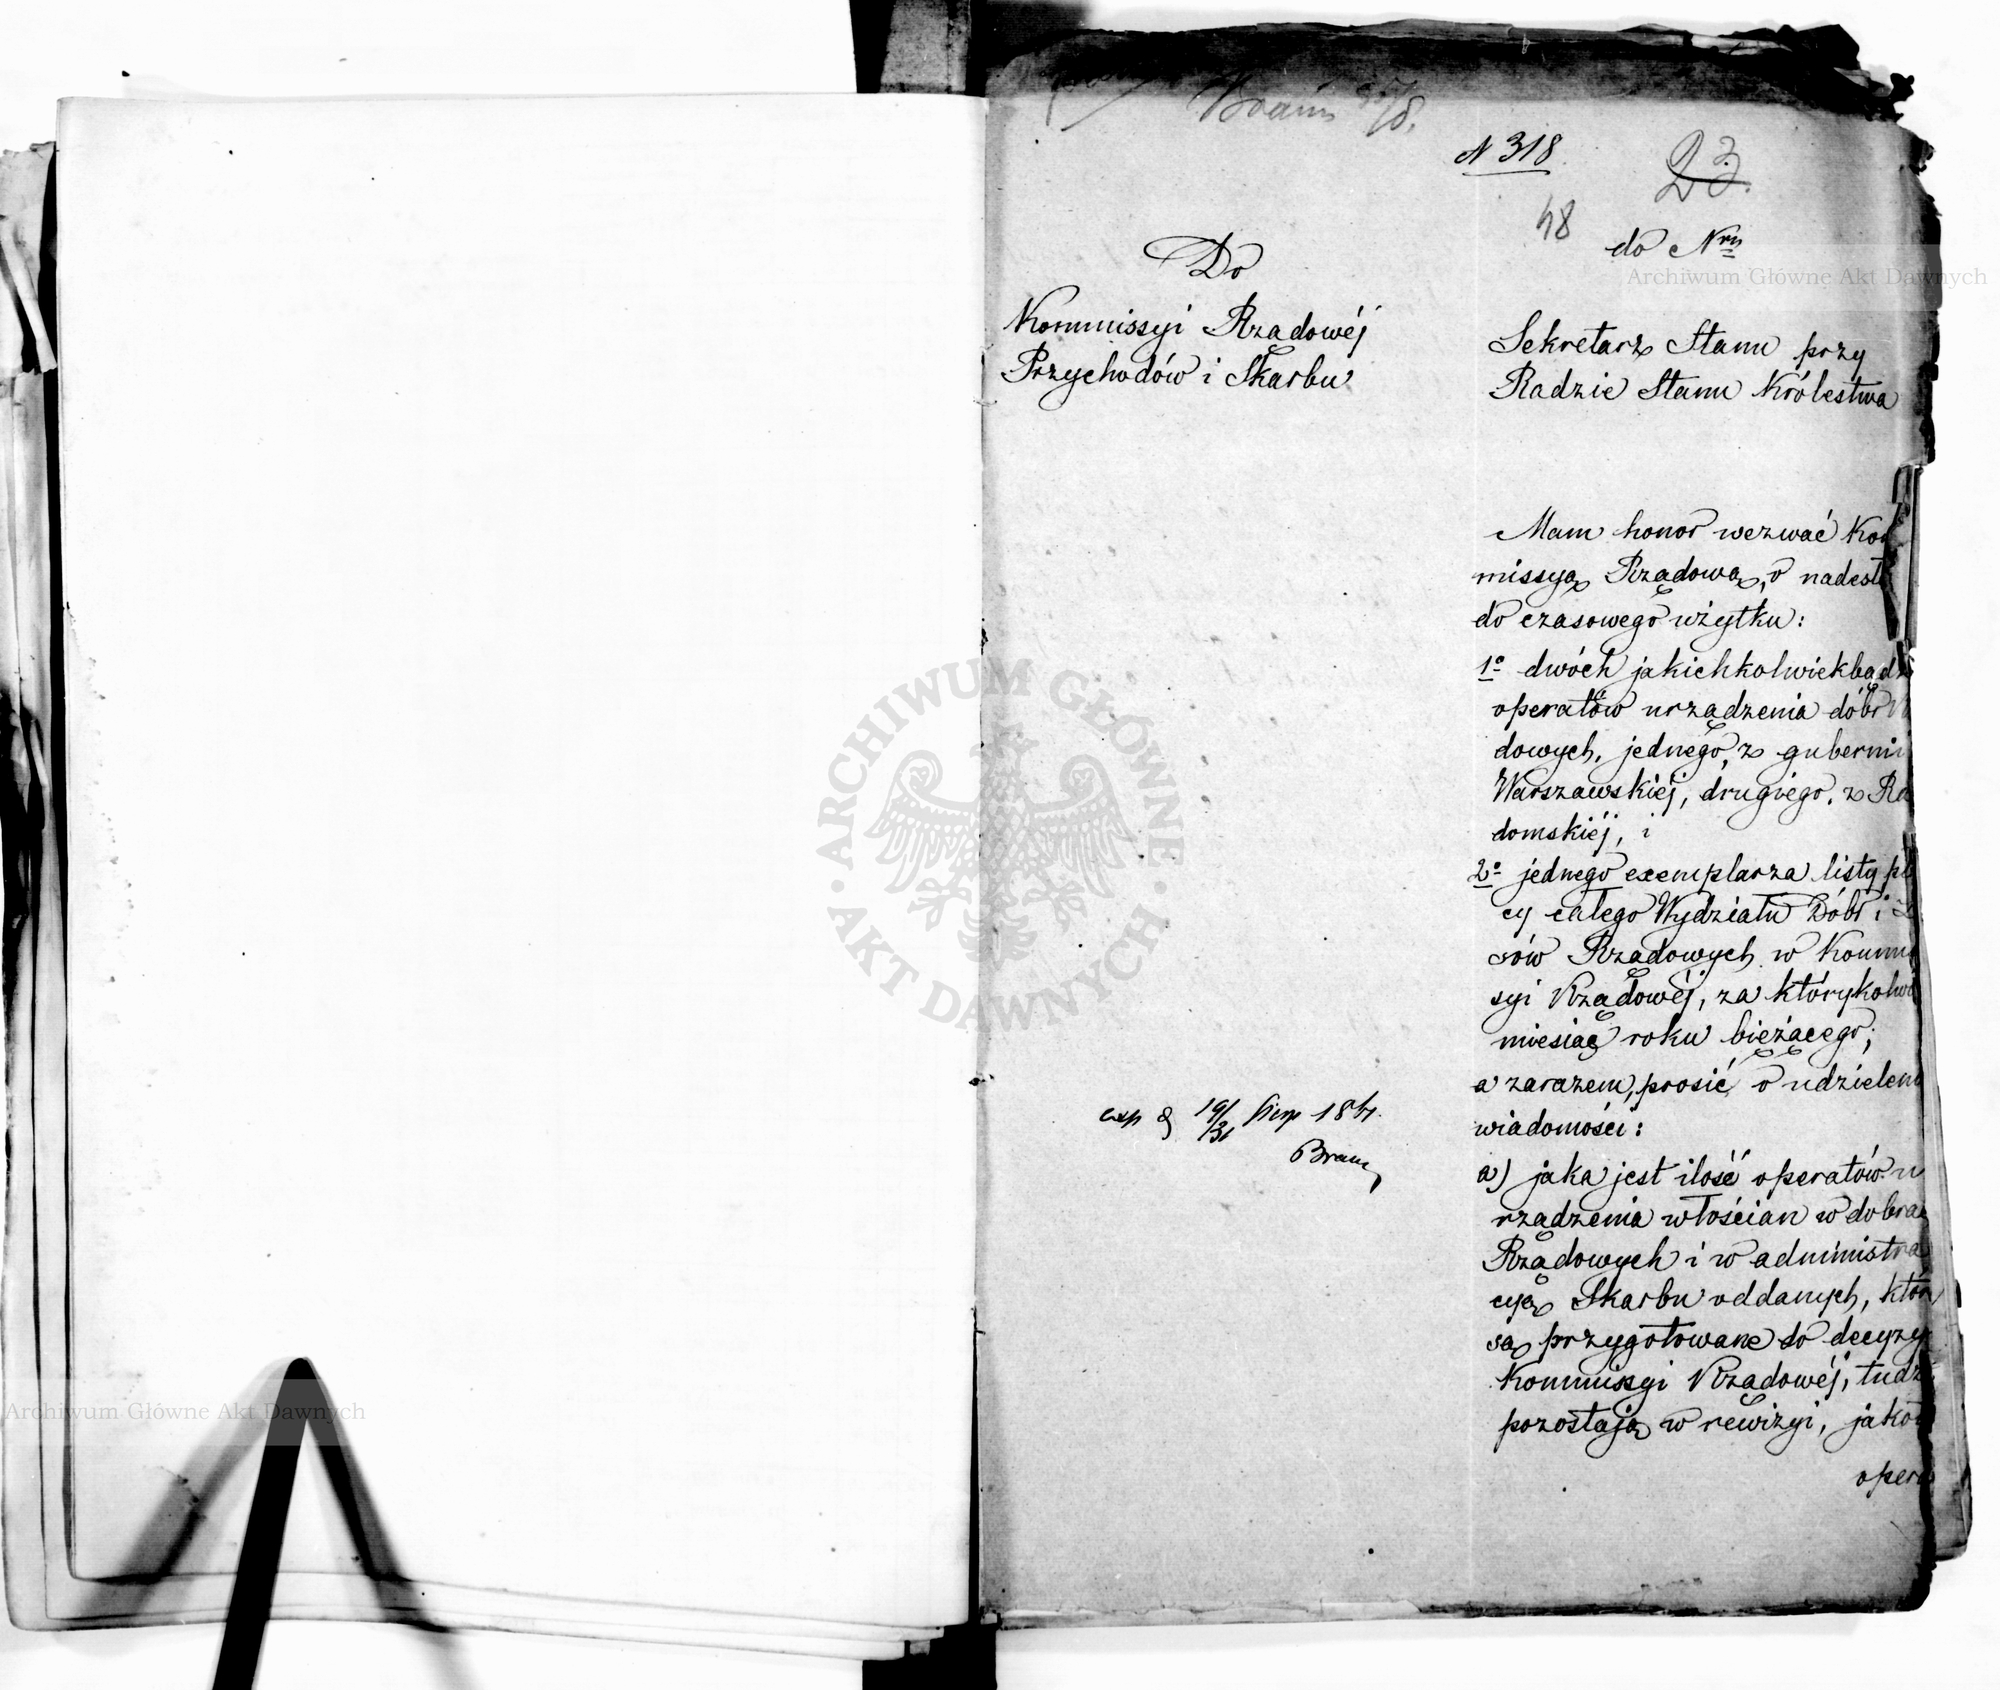 Braun
N 318
23.
48
do Nru
Do
Kommissyi Rządowéj
Przychodów i Skarbu
Sekretarz Stanu przy
Radzie Stanu Królestwa
Mam honor wezwać Kom
missyą Rządową, o nadesł
do czasowego użytku:
1º dwóch jakichkolwiekbądź
operatów urządzenia dóbr
dowych, jednego, z gubernii
Warszawskiéj, drugiego, z Ra
domskiéj, i
2º jednego exemplarza listy pł
cy całego Wydziału Dóbr i L
sów Rządowych w Kommi
syi Rządowéj, za którykolwi
miesiąc roku bieżącego;
a zarazem, prosić o udzieleni
wiadomości:
a) jaka jest ilość operatów u
rządzenia włościan w dobrac
Rządowych i w administra
cyą Skarbu oddanych, któr
są przygotowane do decyzyi
Kommissyi Rządowéj, tudzi
pozostają w rewizyi, jakot
opera
exp d 19/31 Sierp
Braun
ARCHIWUM GŁÓWNE AKT DAWNYCH
Archiwum Główne Akt Dawnych
Archiwum Główne Akt Dawnych